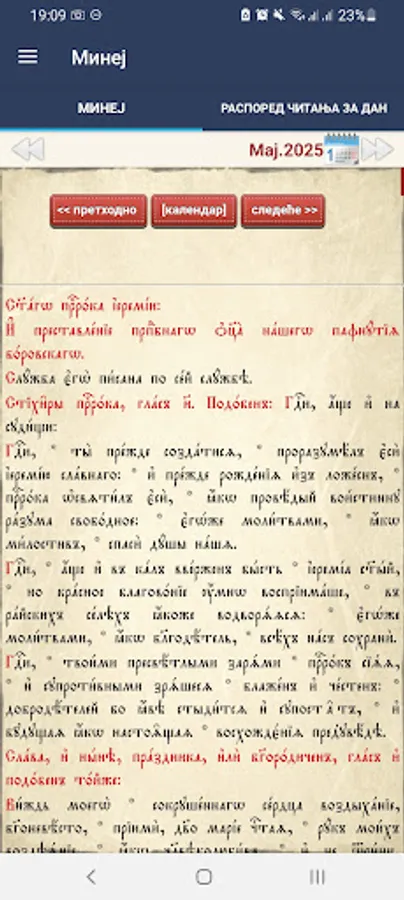 19:09 23%
Минеј
МИНЕЈ РАСПОРЕД ЧИТАЊА ЗА ДАН
Мај.2025
<< претходно [календар] следеће >>
Ст҃а́гѡ прⷪ҇ро́ка і҆еремі́и:
И҆ преставле́нїе прпⷣбнагѡ ѻ҆ц҃а̀ на́шегѡ пафну́тїѧ
бо́ровскагѡ.
Слꙋ́жба є҆гѡ̀ пи́сана по се́й слꙋ́жбѣ.
Стїхи̑ры прⷪ҇ро́ка, гла́съ и҃. Подо́бенъ: Гдⷭ҇и, а҆́ще и҆ на
сꙋди́щи:
Гдⷭ҇и, * ты̀ пре́жде созда́тисѧ, * проразꙋмѣ́лъ є҆сѝ
і҆еремі́ю сла́внаго: * и҆ пре́жде рожде́нїѧ и҆зъ ложе́снъ, *
прⷪ҇ро́ка ѡ҆свѧти́лъ є҆сѝ, * ꙗ҆́кѡ провѣ́дый вои́стиннꙋ
ра́зꙋма свобо́дное: * є҆гѡ́же моли́твами, * ꙗ҆́кѡ
ми́лостивъ, * спасѝ дꙋ́шы на́шѧ.
Гдⷭ҇и, * а҆́ще и҆ въ ка́лъ вве́рженъ бы́сть * і҆еремі́а ст҃ы́й,
* но кра́сное благово́нїе ᲂу҆́мнѡ воспрїима́ше, * въ
ра́йскихъ се́лѣхъ ꙗ҆́коже водворѧ́ѧсѧ: * є҆гѡ́же
моли́твами, * ꙗ҆́кѡ бл҃годѣ́тель, * всѣ́хъ на́съ сохранѝ.
Гдⷭ҇и, * твои́ми пресвѣ́тлыми зарѧ́ми * прⷪ҇ро́къ сїѧ́ѧ,
* и҆ сꙋпроти́вными зрѧ́шесѧ * блаже́нъ и҆ че́стенъ: *
добродѣ́телей бо ꙗ҆́вѣ стыди́тсѧ и҆ сꙋпоста́тъ, * и҆
бꙋ́дꙋщаѧ ꙗ҆́кѡ настоѧ̑щаѧ * восхожде́нїѧ предꙋвѣ́дѣ.
Сла́ва, и҆ ны́нѣ, пра́здника, и҆лѝ бг҃оро́диченъ, гла́съ и҆
подо́бенъ то́йже:
Ви́ждь моегѡ̀ * сокрꙋше́ннагѡ се́рдца воздыха̑нїе,
бг҃оневѣ́сто, * прїимѝ, дв҃о марі́е чⷭ҇таѧ, * рꙋ́къ мои́хъ